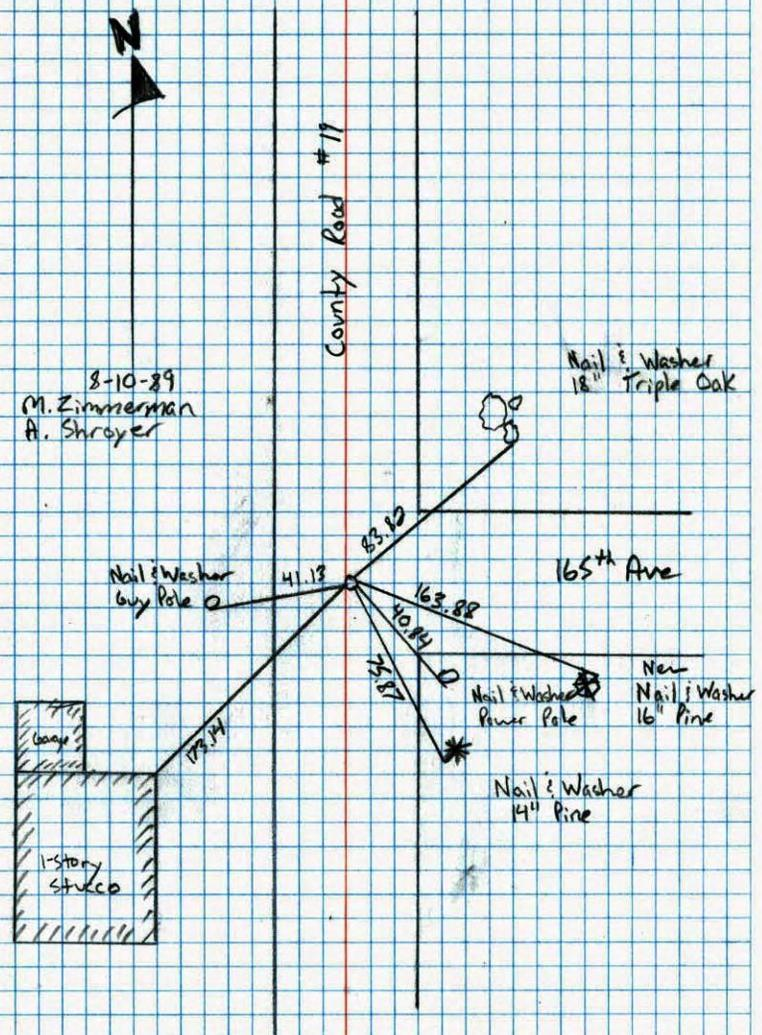 N
County Road #19
8-10-89
M. Zimmerman
A. Shroyer
Nail & Washer
18" Triple Oak
83.82
165th Ave
Nail & Washer
Guy Pole
41.13
163.88
40.84
75.87
173.14
New
Nail & Washer
16" Pine
Nail & Washer
Power Pole
Nail & Washer
14" Pine
Garage
1-Story
Stucco